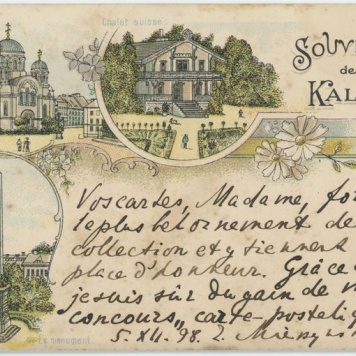 Chalet suisse.
Souv
de
Kal
Vos cartes, Madame, fo
le plus bel ornement de
collection et y tiennent
place d'honneur. Grâce
je suis sûr du gain de
concours „ carte-postal
5. XII. 98. 2.
Le monument